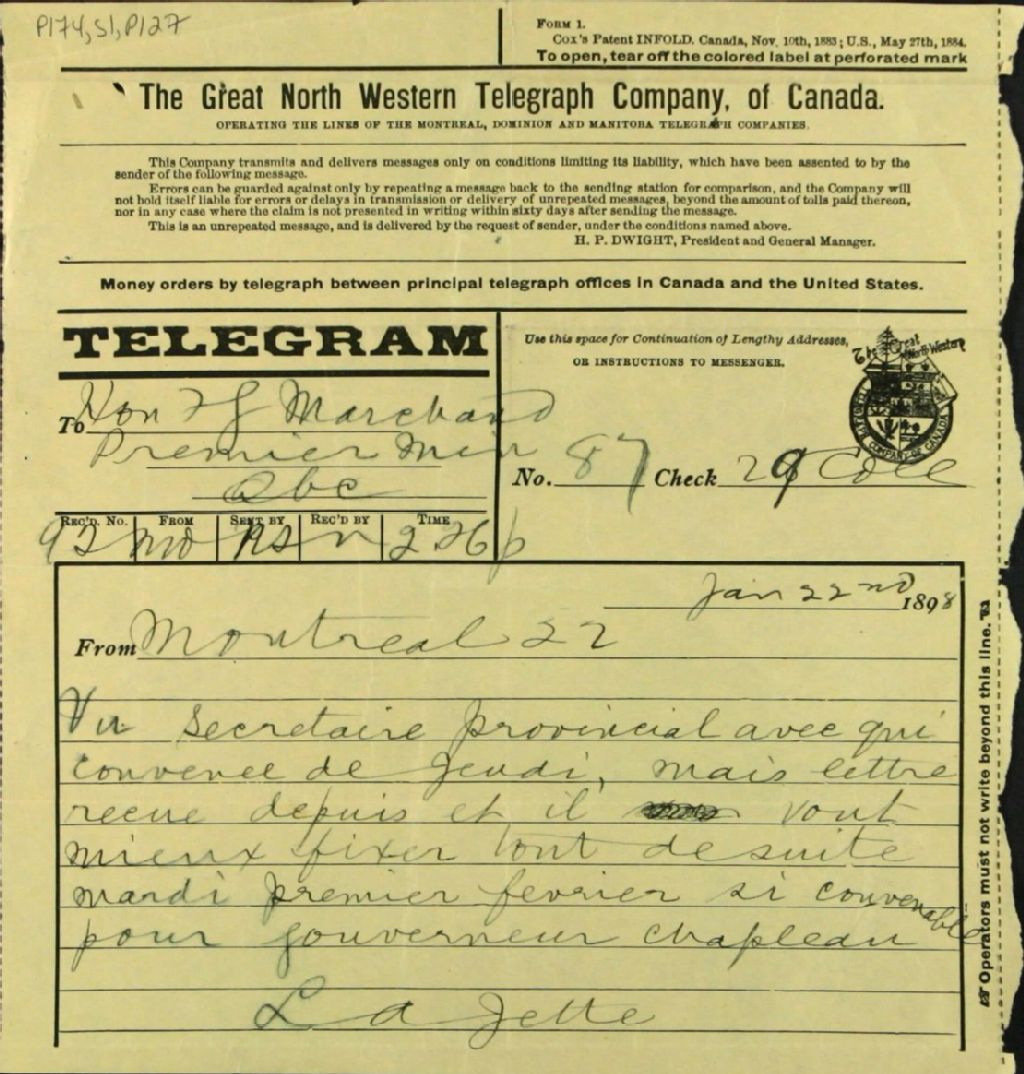 P174, S1, P127
FORM 1.
COX'S Patent INFOLD. Canada, Nov. 10th, 1883; U.S., May 27th, 1884.
To open, tear off the colored label at perforated mark
The Great North Western Telegraph Company, of Canada.
OPERATING THE LINES OF THE MONTREAL, DOMINION AND MANITOBA TELEGRAPH COMPANIES.
This Company transmits and delivers messages only on conditions limiting its liability, which have been assented to by the
sender of the following message.
Errors can be guarded against only by repeating a message back to the sending station for comparison, and the Company will
not hold itself liable for errors or delays in transmission or delivery of unrepeated messages, beyond the amount of tolls paid thereon,
nor in any case where the claim is not presented in writing within sixty days after sending the message.
This is an unrepeated message, and is delivered by the request of sender, under the conditions named above.
H. P. DWIGHT, President and General Manager.
Money orders by telegraph between principal telegraph offices in Canada and the United States.
TELEGRAM
Use this space for Continuation of Lengthy Addresses,
OR INSTRUCTIONS TO MESSENGER.
The Great North Western
TELEGRAPH COMPANY OF CANADA
To Hon F G Marchand
Premier Min
Qbc
No. 87 Check 29 Coll
REC'D. No. FROM SENT BY REC'D BY TIME
92 Mo RS n 2 26 p
Jan 22nd 1898
From Montreal 22
Vu Secretaire provincial avec qui
convenee de Jeudi, mais lettre
recue depuis et il vout
mieux fixer tout de suite
mardi premier fevrier si convenable
pour gouverneur chapleau
L a Jette
Operators must not write beyond this line.